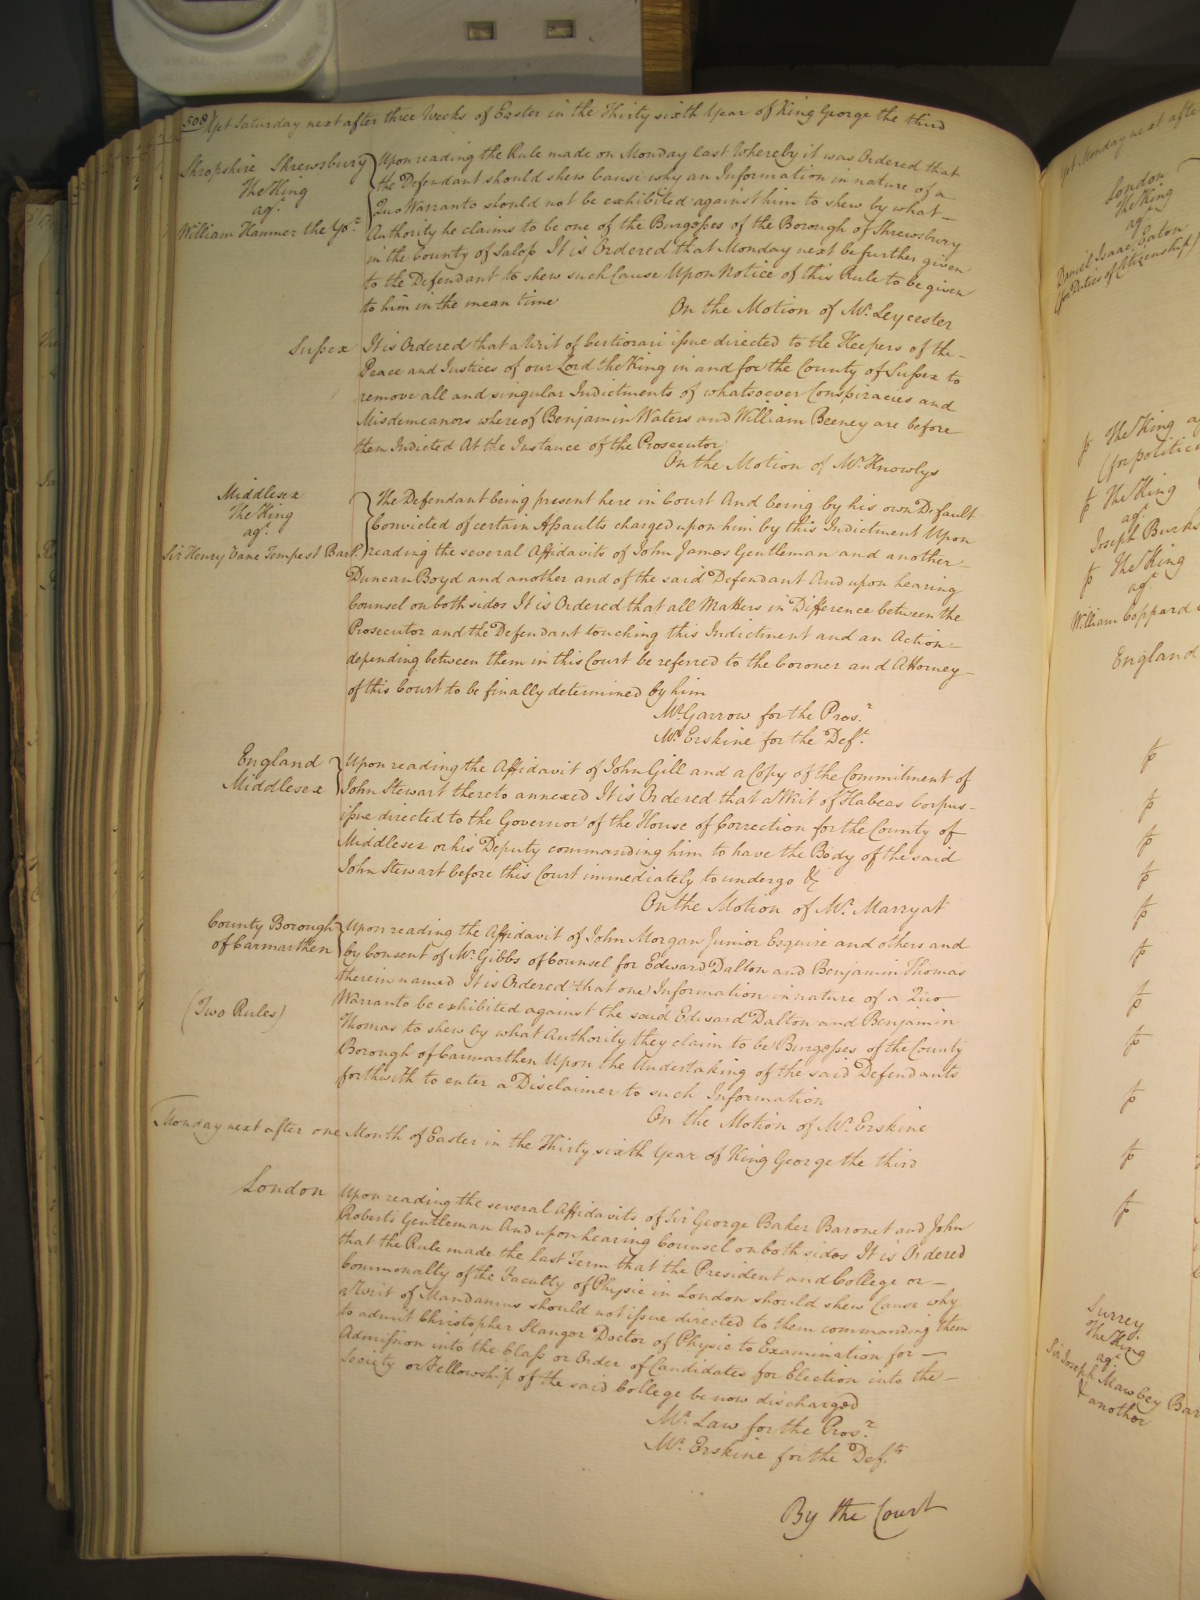 508
Upt Saturday next after three Weeks of Easter in the Thirty sixth Year of King George the third
Shropshire Shrewsbury
The King
agt.
William Hanmer the Yor.
Upon reading the Rule made on Monday last Whereby it was Ordered that
the Defendant should shew Cause why an Information in nature of a
Quo Warranto should not be exhibited against him to shew by what
Authority he claims to be one of the Burgesses of the Borough of Shrewsbury
in the County of Salop It is Ordered that Monday next be further given
to the Defendant to shew such Cause Upon Notice of this Rule to be given
to him in the mean time
On the Motion of Mr. Leycester
Sussex
It is Ordered that a Writ of Certiorari issue directed to the Keepers of the
Peace and Justices of our Lord the King in and for the County of Sussex to
remove all and singular Indictments of whatsoever Conspiracies and
Misdemeanors whereof Benjamin Waters and William Beeney are before
them Indicted At the Instance of the Prosecutor
On the Motion of Mr. Knowlys
Middlesex
The King
agt.
Sir Henry Vane Tempest Bart.
The Defendant being present here in Court And being by his own Default
Convicted of certain Assaults charged upon him by this Indictment Upon
reading the several Affidavits of John James Gentleman and another
Duncan Boyd and another and of the said Defendant And upon hearing
Counsel on both sides It is Ordered that all Matters in Difference between the
Prosecutor and the Defendant touching this Indictment and an Action
depending between them in this Court be referred to the Coroner and Attorney
of this Court to be finally determined by him
Mr. Garrow for the Prosr.
Mr. Erskine for the Deft.
England
Middlesex
Upon reading the Affidavit of John Gill and a Copy of the Commitment of
John Stewart thereto annexed It is Ordered that a Writ of Habeas Corpus
issue directed to the Governor of the House of Correction for the County of
Middlesex or his Deputy commanding him to have the Body of the said
John Stewart before this Court immediately to undergo &c
On the Motion of Mr. Marryat
County Borough
of Carmarthen
(Two Rules)
Upon reading the Affidavit of John Morgan Junior Esquire and others and
by Consent of Mr. Gibbs of Counsel for Edward Dalton and Benjamin Thomas
therein named It is Ordered that one Information in nature of a Quo
Warranto be exhibited against the said Edward Dalton and Benjamin
Thomas to shew by what Authority they claim to be Burgesses of the County
Borough of Carmarthen Upon the Undertaking of the said Defendants
forthwith to enter a Disclaimer to such Information
On the Motion of Mr. Erskine
Monday next after one Month of Easter in the Thirty sixth Year of King George the third
London
Upon reading the several Affidavits of Sir George Baker Baronet and John
Roberts Gentleman And upon hearing Counsel on both sides It is Ordered
that the Rule made the last Term that the President and College or
Commonalty of the Faculty of Physic in London should shew Cause why
a Writ of Mandamus should not issue directed to them commanding them
to admit Christopher Stanger Doctor of Physic to Examination for
Admission into the Class or Order of Candidates for Election into the
Society or Fellowship of the said College be now discharged
Mr. Law for the Prosr.
Mr. Erskine for the Defts.
By the Court
Upt Monday next afte
London
The King
agt.
Daniel Isaac Eaton
(for Duties of Citizenship)
The King
(for politica
The King
agt.
Joseph Burks
The King
agt.
William Coppard
England
Surrey
The King
agt.
Sir Joseph Mawbey Bar
& another